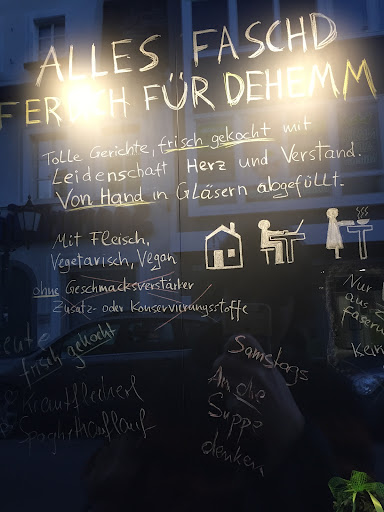 ALLES FASCHD
FERTICH FÜR DEHEMM
Tolle Gerichte, frisch gekocht mit
Leidenschaft Herz und Verstand.
Von Hand in Gläsern abgefüllt.
Mit Fleisch,
Vegetarisch, Vegan
ohne Geschmacksverstärker
Zusatz- oder Konservierungsstoffe
Nur
aus
faseri
Kei
eute
frisch gekocht
Krautfleckerl
Spaghettiauflauf
Samstags
An die
Suppe
denken